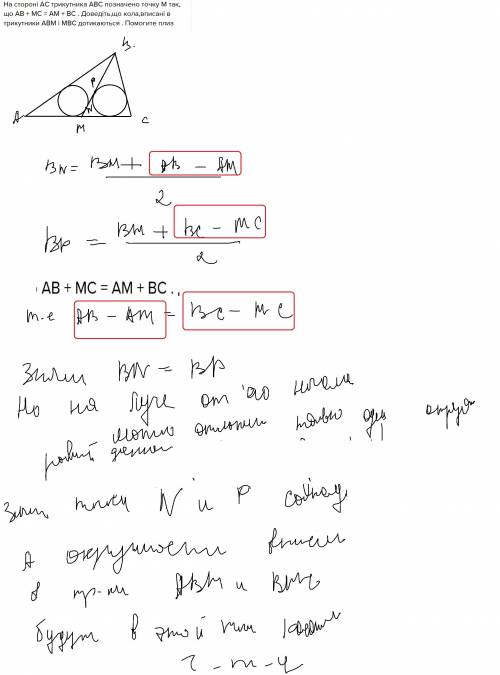 На стороні AC трикутника ABC позначено точку M так,
що AB + MC = AM + BC . Доведіть,що кола,вписані в
трикутники ABM і MBC дотикаються . Помогите плиз
B.
P
N
A
M
C
BN = BM + AB - AM
2
BP = BM + BC - MC
2
AB + MC = AM + BC . ,
т-е AB - AM = BC - MC
Значит BN = BP
Но на луче от его начала
можно отложить только один отрезок
равной длины
Значит точки N и P совпад
А окружности вписан
в тр-ки ABM и BMC
будут в этой точке касаться
ч - т - д